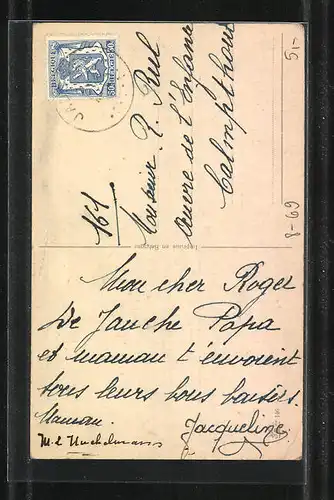 BELGIQUE
50
BELGIE
5,-
8-69
Monsieur R. Reul
Œuvre de l'Enfance
Calmpthout
161
Imprimé en Belgique
Mon cher Roger
De Jauche Papa
et maman t'envoient
tous leurs bons baisers.
Maman.
Jacqueline